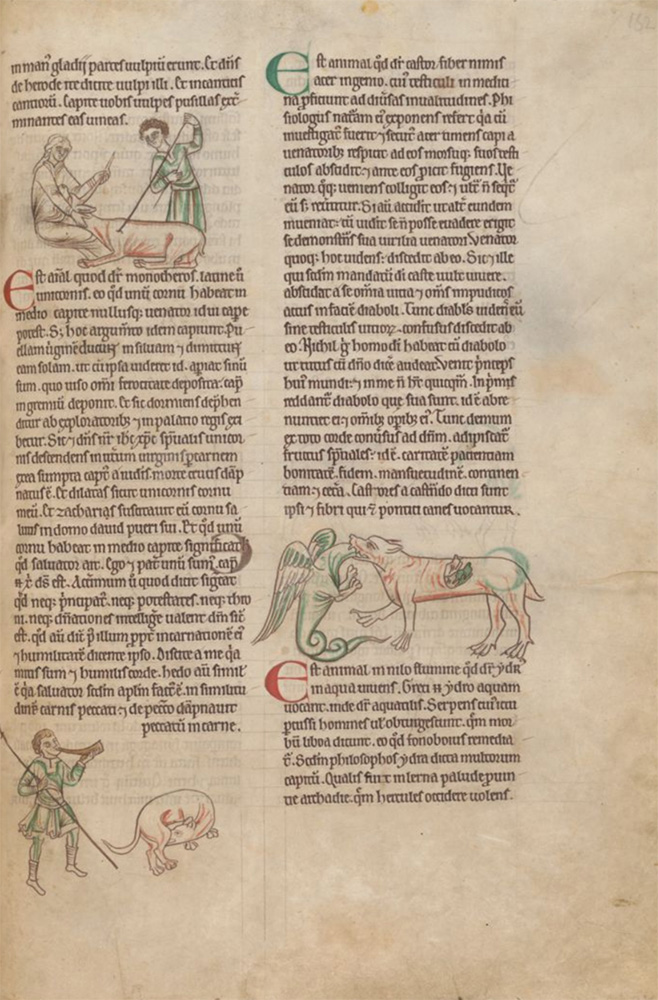 in man⁹ gladij partes uulpiũ erunt. Et dñs
de herode rex dicite uulpi illi. Et in canticis
canticoꝝ. Capite uobis uulpes pusillas ext̾
minantes eas uineas.
Est aĩal quod dr̃ monotheros. latine ũ
unicornis. eo qd unũ cornu habeat in
medio capite nullusq; uenator idui cape
potest. S; hoc argum̃to idem capiunt. Pu
ellam ũginẽ ducũt in siluam ⁊ dimittũt
eam solam. at cũ ipsa uiderit id. apiat sinũ
suum. quo uiso om̃i ferocitate deposita. cap̃
in gremiũ deponit. Et sic dormiens dep̃hen
ditur ab exploratorib; ⁊ in palatio regis exi
betur. Sic ⁊ dñs nr̃ ihc xp̃c sp̃ualis unicor
nis descendens in uterum uirginis p carnem
ex ea sumpta capt⁹ a iudeis. morte crucis dãp
natus ẽ. Et dilatas sicut unicornis cornu
meũ. Et zacharias suscitauit eũ cornu sa
lutis in domo dauid pueri sui. Et qd unũ
cornu habeat in medio capite significat
qd saluator ait. Ego ⁊ pat̾ unũ sum⁹. cap̃
xp̃i ds̃ est. Accrimum ũ quod dicit̾ sig̃cat
qd neq; p̃ncipat⁹. neq; potestates. neq; thro
ni. neq; dñationes intellige ualent dm̃ sic̃
est. qd aũ dic̃ p̾illum ppt̾ incarnationẽ ei⁹
⁊ humilitatẽ dicente ipso. Discite a me q̃a
mitis sum ⁊ humilis corde. hedo aũ simil̾
ẽ q̃a saluator sc̃dm apl̃m fact⁹ ẽ. in similitu
dinẽ carnis peccati ⁊ de pecc̃o dãpnauit
peccatũ in carne.
Est animal qd dr̃ castor fiber nimis
acer ingenio. cui⁹ testiculi in medici
na p̾ficiunt ad diũsas inualitudines. Phi
siologus naťam ei⁹ exponens refert q̃a cũ
inuestigat⁹ fuerit ⁊ secut⁹ acer timens capi a
uenatorib; respicit ad eos morsuq; suos testi
culos abscidit ⁊ ante eos p̾icit fugiens. Ue
nator qq; ueniens colligit eos ⁊ ult̾ ñ seq̃t̾
eũ s; reũtitur. Si aũ accidit ut alt̾ eundem
inueniat ⁊ cũ uidit̾ se ñ posse euadere erigit
se demonst̃ns sua uirilia uenatori. Venator
quoq; hoc uidens ⁊ discedit ab eo. Sic ⁊ ille
qui sc̃dm mandatũ di caste uult uiuere.
abscidat a se om̃ia uicia ⁊ om̃s impudicos
actus in faciẽ diaboli. Tunc diabl̃s uidens eũ
sine testiculis uicior⁊ confusus discedit ab
eo. Nichil g̾ homo di habeat cũ diabolo
ut tutus cũ dño dicẽ audeat. Venit p̃nceps
hui⁹ mundi ⁊ in me ñ ht̃ quicqm̃. In p̾mis
reddant̾ diabolo que sua sunt. id ẽ abre
nuntiet ei ⁊ om̃ib; opib; ei⁹. Tunc demum
ex toto corde conũsus ad dñm. adipiscat̾
fructus sp̃uales. id ẽ. caritatẽ pacientiam
bonitatẽ. fidem. mansuetudinẽ. continen
tiam. ⁊ cet̾a. Castores a castr̃ndo dicti sunt
ipsi ⁊ fibri qui ⁊ pontici canes uocantur.
Est animal in nilo flumine qd dr̃ ydr̾
in aqua uiuens. Greci eñ ydro aquam
uocant. inde dr̃ aquatilis. Serpens cui⁹ ictu
p̾cussi homines ul̃ obungescunt. qm̃ mor
bũ liboa dicunt. eo qd fimo bouis remedia
ẽ. Sc̃dm philosophos ydra dicta multorum
capitũ. Qualis fuit in lerna palude p̾uin
cie archadie. qm̃ hercules occidere uolens.